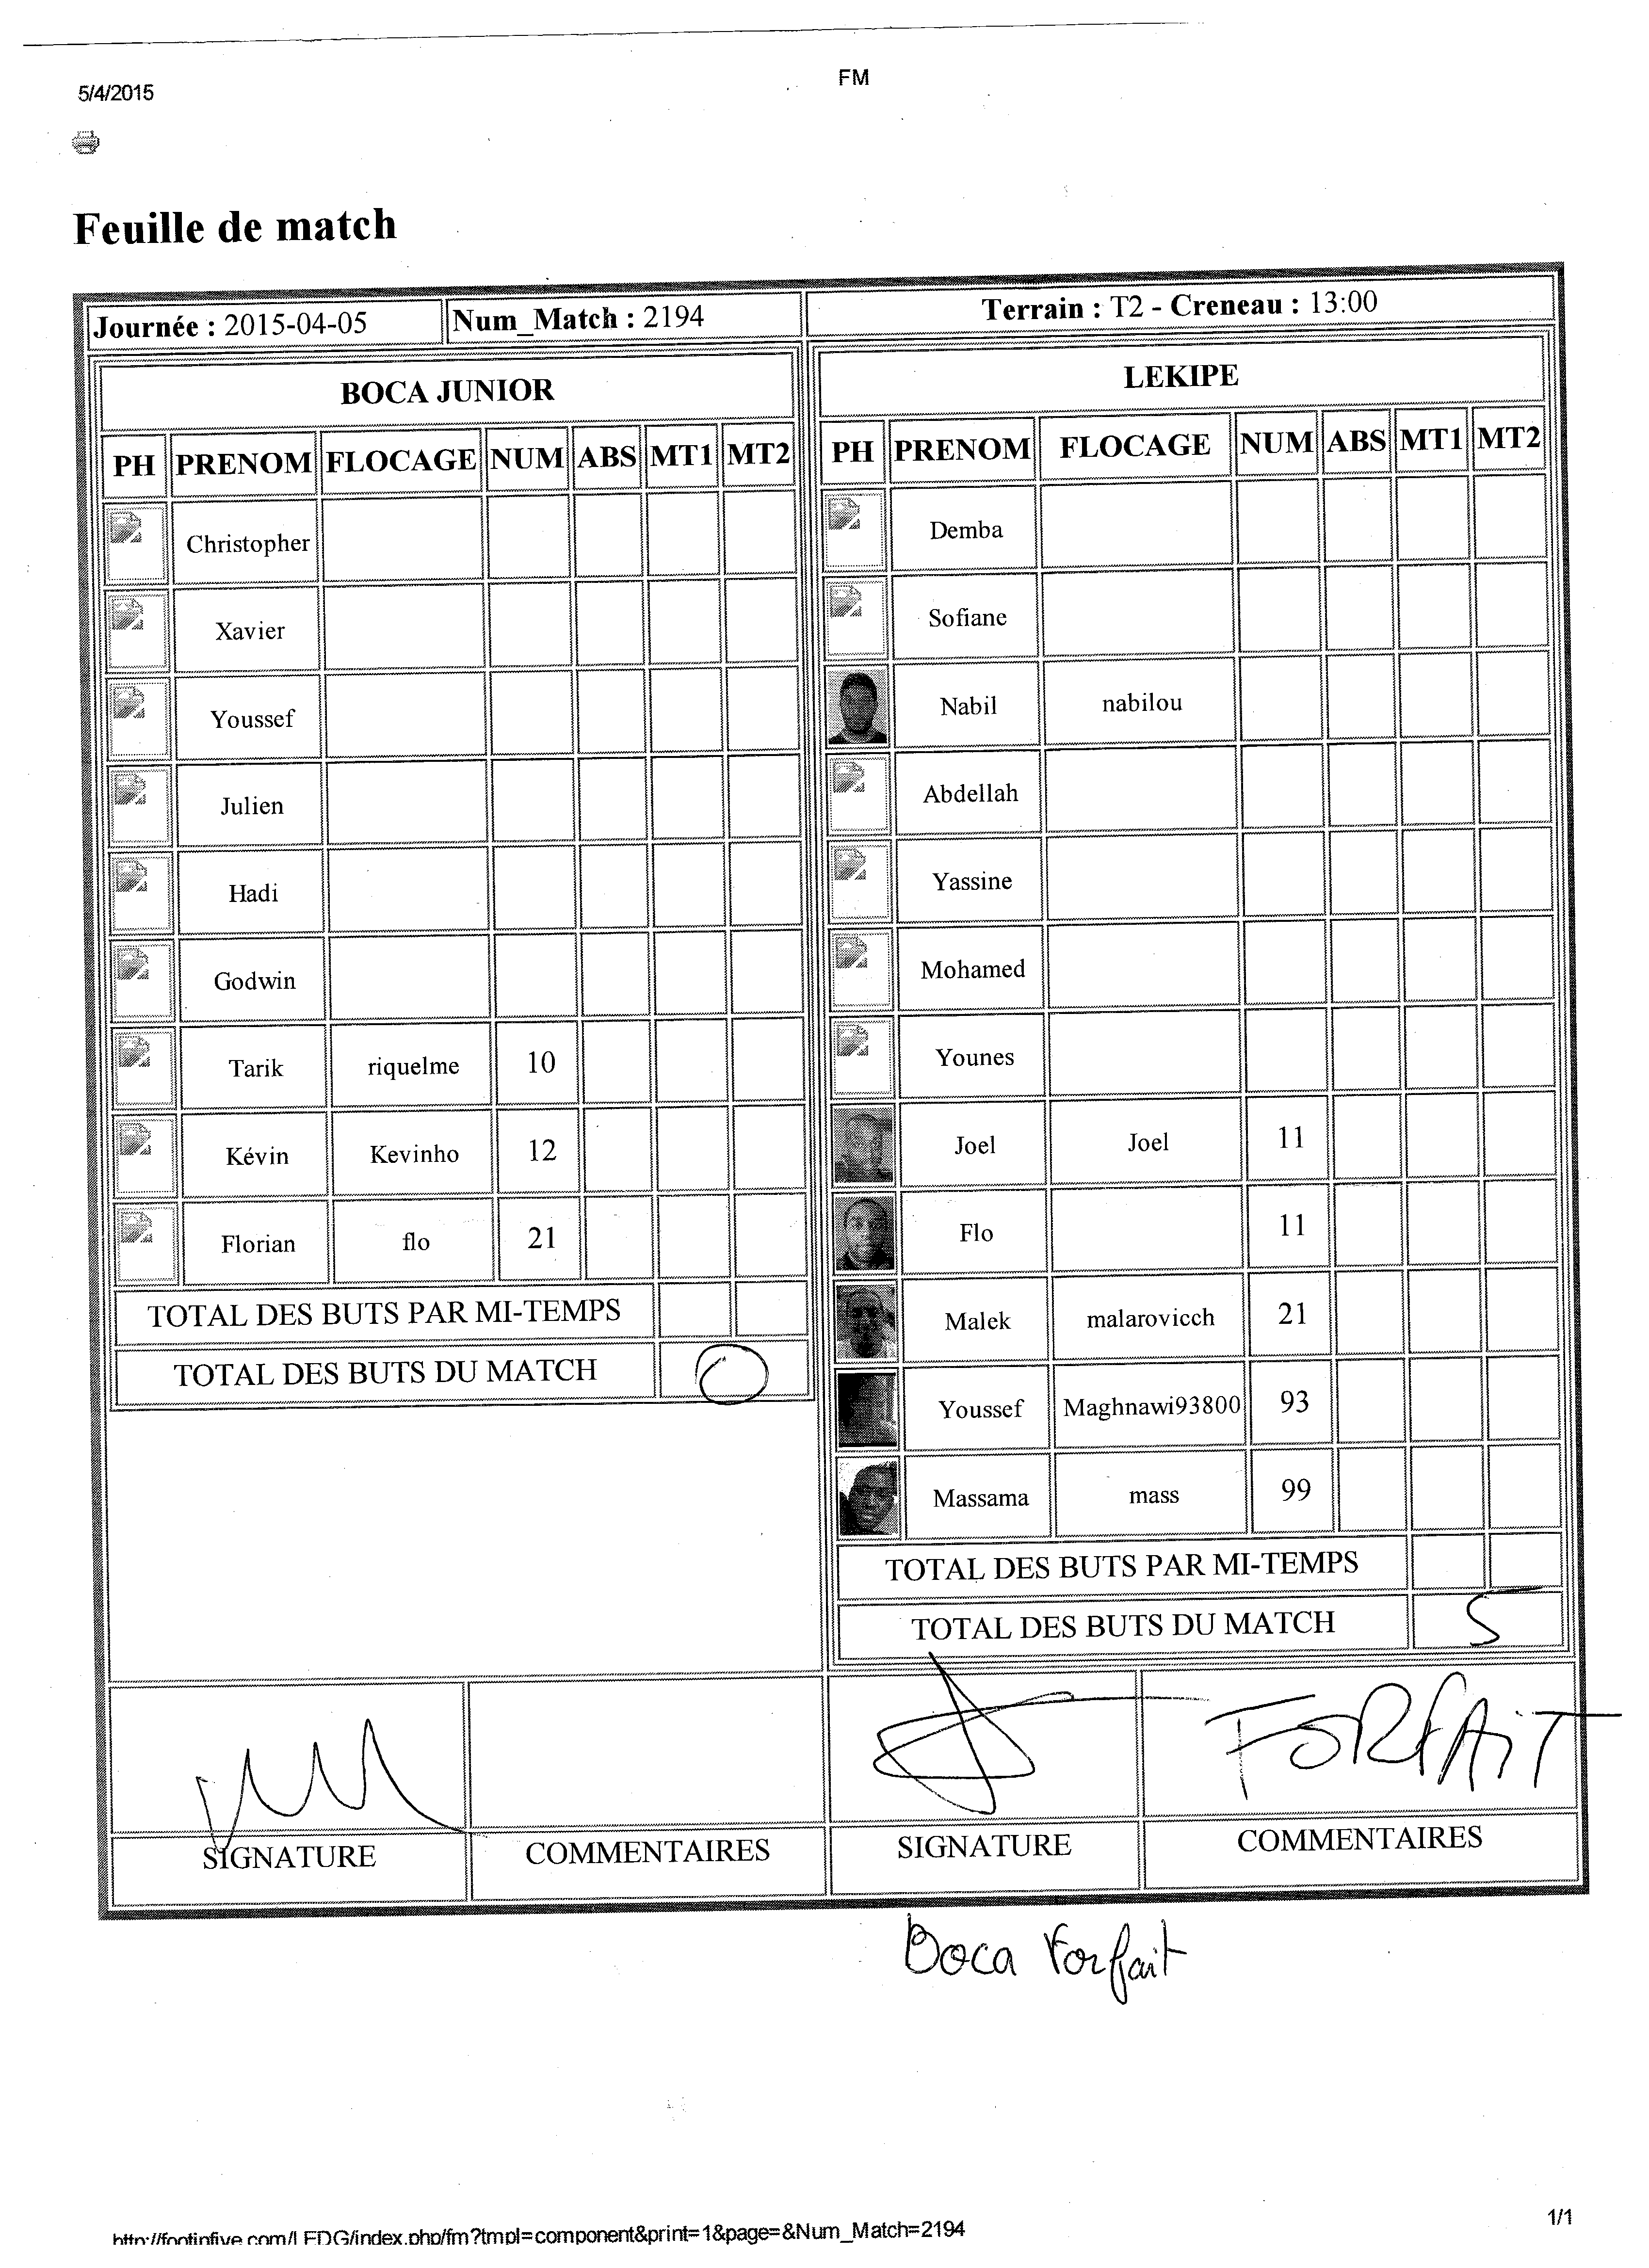 FM
5/4/2015
Feuille de match
Journée : 2015-04-05 Num_Match : 2194 Terrain : T2 - Creneau : 13:00
BOCA JUNIOR
PH PRENOM FLOCAGE NUM ABS MT1 MT2
Christopher
Xavier
Youssef
Julien
Hadi
Godwin
Tarik riquelme 10
Kévin Kevinho 12
Florian flo 21
TOTAL DES BUTS PAR MI-TEMPS
TOTAL DES BUTS DU MATCH 0
LEKIPE
PH PRENOM FLOCAGE NUM ABS MT1 MT2
Demba
Sofiane
Nabil nabilou
Abdellah
Yassine
Mohamed
Younes
Joel Joel 11
Flo 11
Malek malarovicch 21
Youssef Maghnawi93800 93
Massama mass 99
TOTAL DES BUTS PAR MI-TEMPS
TOTAL DES BUTS DU MATCH 5
FORFAiT
SIGNATURE COMMENTAIRES SIGNATURE COMMENTAIRES
Boca Forfait
http://footinfive.com/LEDG/index.php/fm?tmpl=component&print=1&page=&Num_Match=2194 1/1